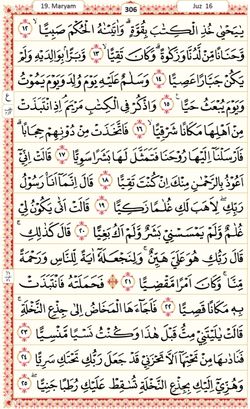 19. Maryam 306 Juz 16
يٰيَحْيٰى خُذِ الْكِتٰبَ بِقُوَّةٍ ۗ وَاٰتَيْنٰهُ الْحُكْمَ صَبِيًّا ۙ ١٢
وَّحَنَانًا مِّنْ لَّدُنَّا وَزَكٰوةً ۗ وَكَانَ تَقِيًّا ۙ ١٣ وَّبَرًّا بِوَالِدَيْهِ وَلَمْ
يَكُنْ جَبَّارًا عَصِيًّا ١٤ وَسَلٰمٌ عَلَيْهِ يَوْمَ وُلِدَ وَيَوْمَ يَمُوْتُ
وَيَوْمَ يُبْعَثُ حَيًّا ١٥ وَاذْكُرْ فِى الْكِتٰبِ مَرْيَمَ ۘ اِذِ انْتَبَذَتْ
مِنْ اَهْلِهَا مَكَانًا شَرْقِيًّا ۙ ١٦ فَاتَّخَذَتْ مِنْ دُوْنِهِمْ حِجَابًا ۗ
فَاَرْسَلْنَآ اِلَيْهَا رُوْحَنَا فَتَمَثَّلَ لَهَا بَشَرًا سَوِيًّا ١٧ قَالَتْ اِنِّيْٓ
اَعُوْذُ بِالرَّحْمٰنِ مِنْكَ اِنْ كُنْتَ تَقِيًّا ١٨ قَالَ اِنَّمَآ اَنَا۠ رَسُوْلُ
رَبِّكِ ۖ لِاَهَبَ لَكِ غُلٰمًا زَكِيًّا ١٩ قَالَتْ اَنّٰى يَكُوْنُ لِيْ
غُلٰمٌ وَّلَمْ يَمْسَسْنِيْ بَشَرٌ وَّلَمْ اَكُ بَغِيًّا ٢٠ قَالَ كَذٰلِكِ ۚ
قَالَ رَبُّكِ هُوَ عَلَيَّ هَيِّنٌ ۚ وَلِنَجْعَلَهٗٓ اٰيَةً لِّلنَّاسِ وَرَحْمَةً
مِّنَّا ۚ وَكَانَ اَمْرًا مَّقْضِيًّا ٢١ فَحَمَلَتْهُ فَانْتَبَذَتْ
بِهٖ مَكَانًا قَصِيًّا ٢٢ فَاَجَاۤءَهَا الْمَخَاضُ اِلٰى جِذْعِ النَّخْلَةِ ۚ
قَالَتْ يٰلَيْتَنِيْ مِتُّ قَبْلَ هٰذَا وَكُنْتُ نَسْيًا مَّنْسِيًّا ٢٣
فَنَادٰىهَا مِنْ تَحْتِهَآ اَلَّا تَحْزَنِيْ قَدْ جَعَلَ رَبُّكِ تَحْتَكِ سَرِيًّا ٢٤
وَهُزِّيْٓ اِلَيْكِ بِجِذْعِ النَّخْلَةِ تُسٰقِطْ عَلَيْكِ رُطَبًا جَنِيًّا ۖ ٢٥